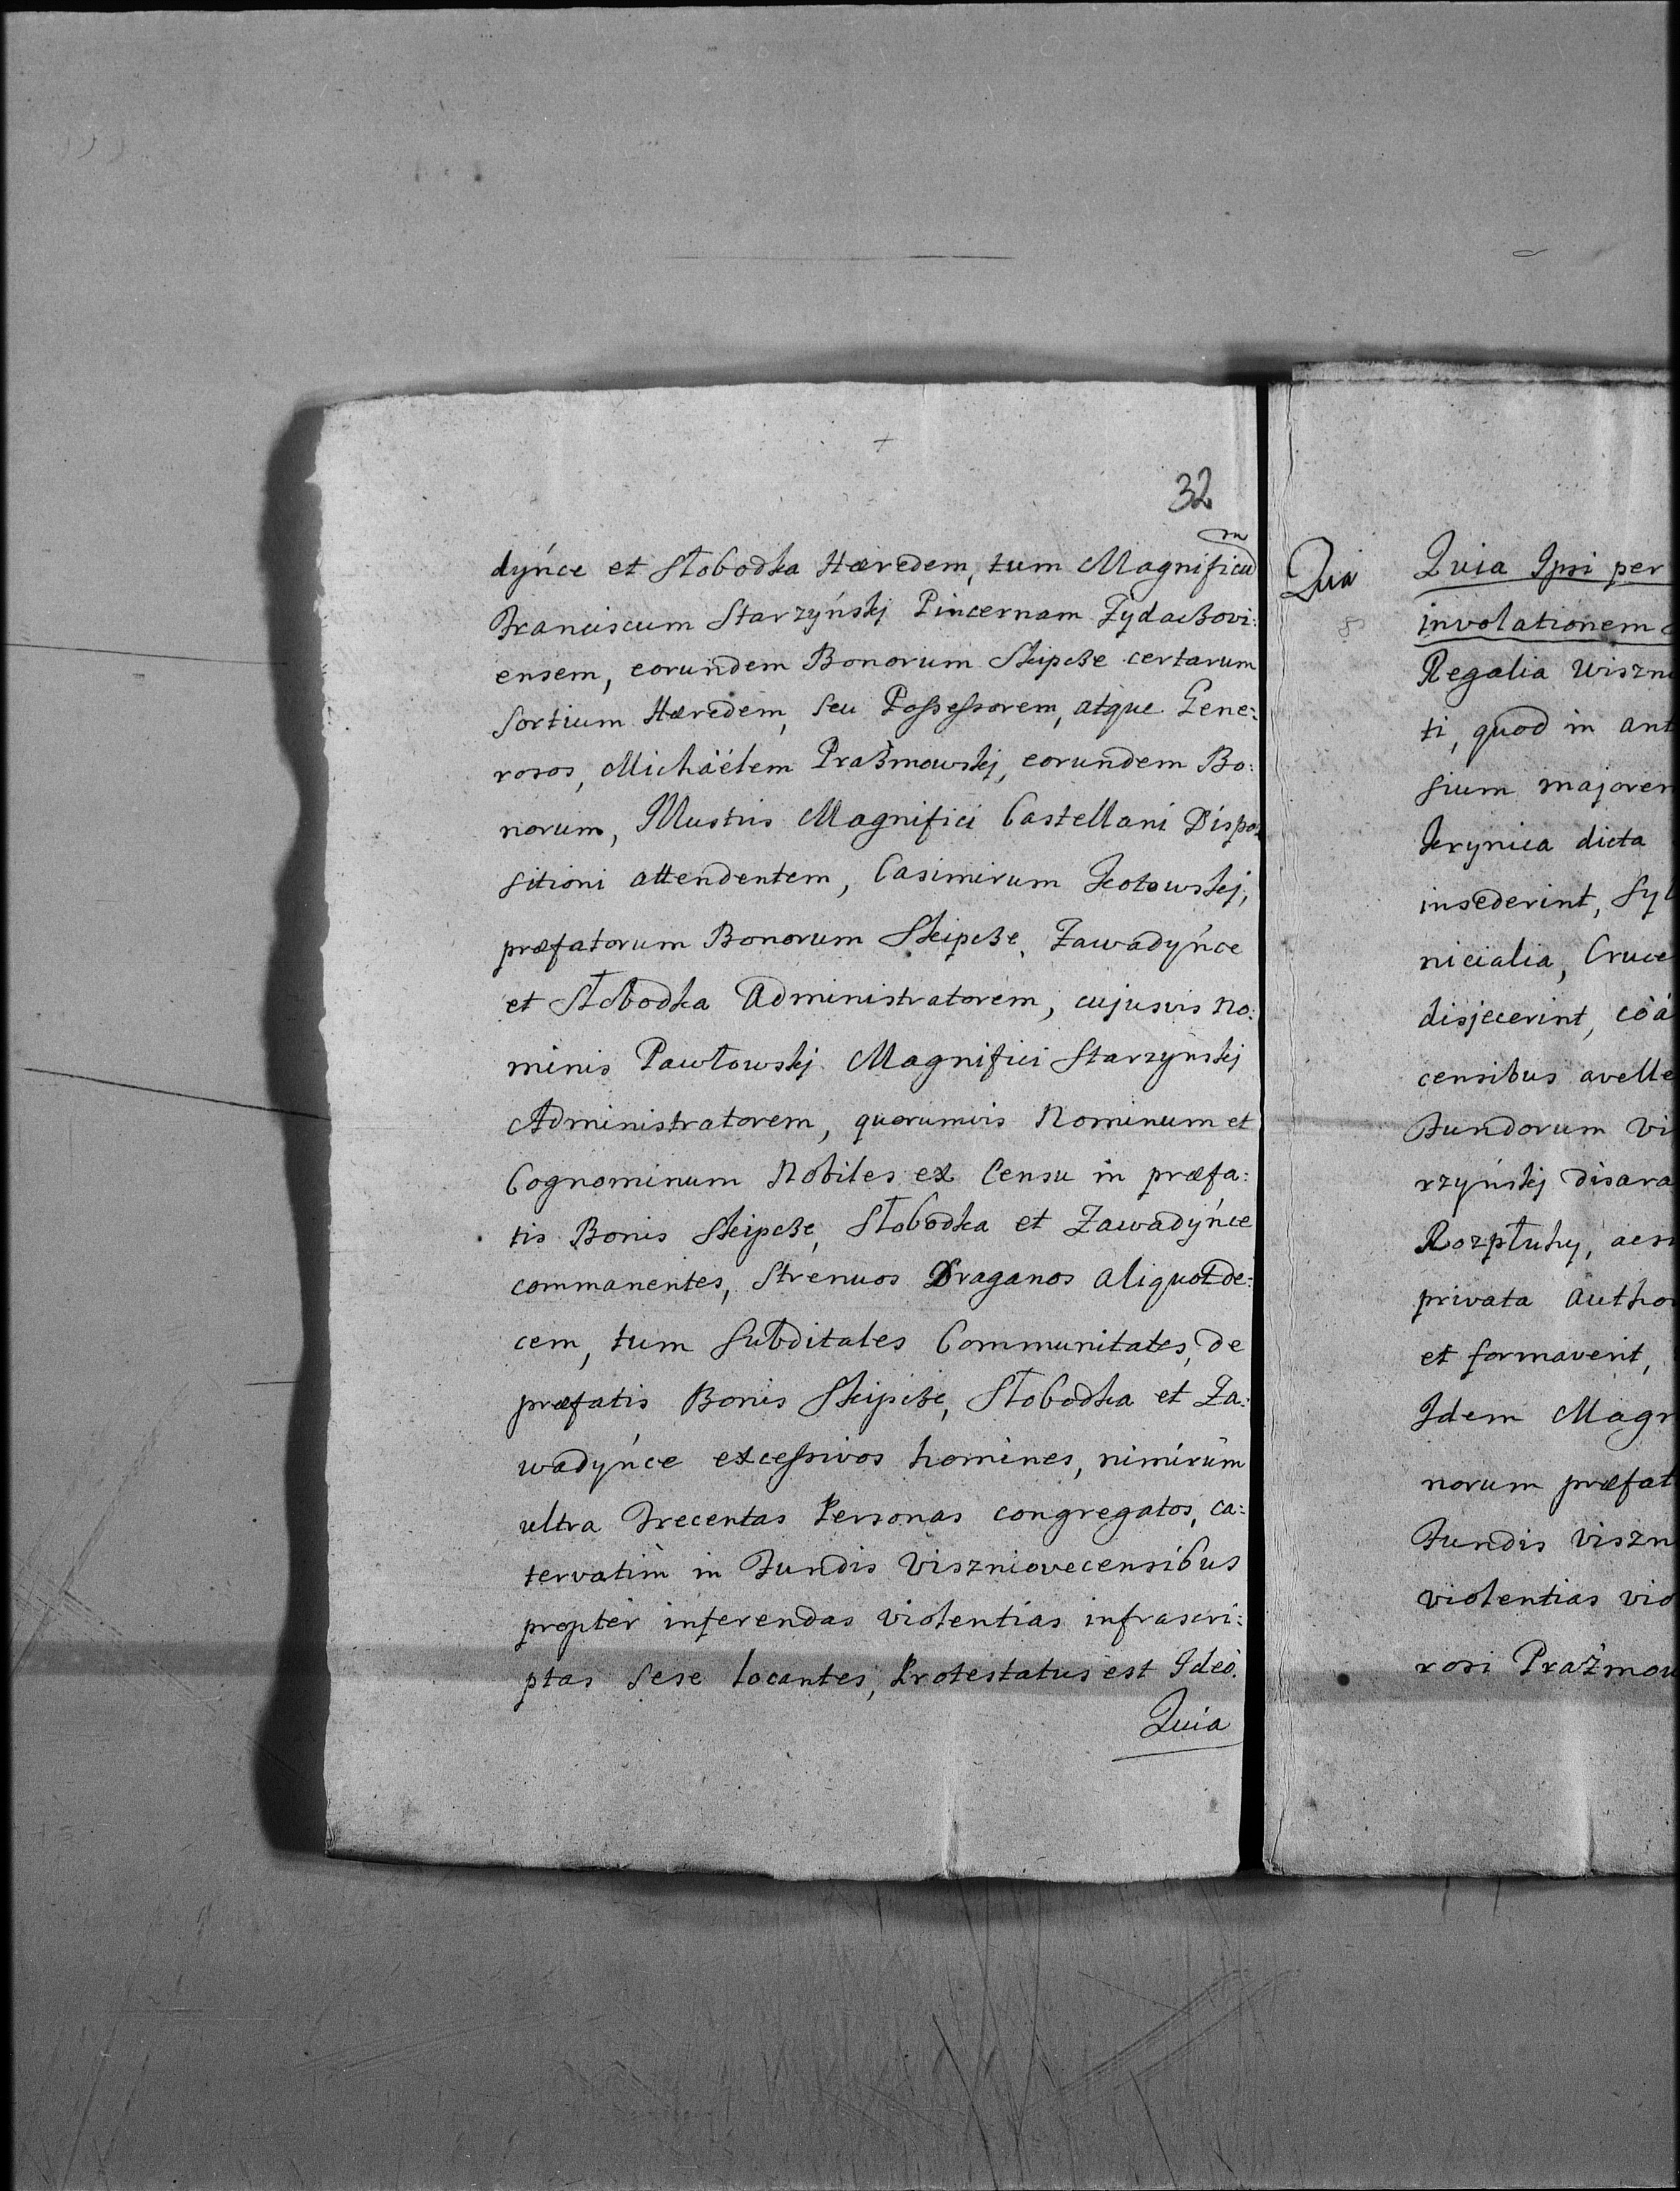 32
dyńce et Słobodka Hæredem, tum Magnificum
Franciscum Starzyńskj Pincernam Zydaczovi:
ensem, eorundem Bonorum Skipcze certarum
Sortium Hæredem, seu Possessorem, atque Gene:
rosos, Michäelem Prażmowskj, eorundem Bo:
norum, Illustris Magnifici Castellani Dispo:
sitioni attendentem, Casimirum
præfatorum Bonorum Skipcze, Zawadyńce
et Słobodka Administratorem, cujusvis No:
minis Pawłowskj Magnifici Starzynskj
Administratorem, quorumvis Nominum et
Cognominum Nobiles ex Censu in præfa:
tis Bonis Skipcze, Słobodka et Zawadyńce
commanentes, Strenuos Draganos aliquot de:
cem, tum Subditales Communitates, de
præfatis Bonis Skipcze, Słobodka et Za:
wadyńce excessivos homines, nimirùm
ultra Trecentas Personas congregatos, ca:
tervatim in Fundis Viszniovecensibus
propter inferendas violentias infrascri:
ptas sese locantes, Protestatus est Ideò.
Quia
Quia
Quia Ipsi per
involationem
Regalia Wiszn
ti, quod in ant
sium majorem
Krynica dicta
insederint, Syl
nicialia, Cruce
disjecerint, coà
censibus avelle
Fundorum Vi
rzyńskj disara
Rozpłuhy, acsi
privata Autho
et formaverit,
Idem Magn
norum præfat
Fundis Viszn
violentias vio
rosi Prażmow